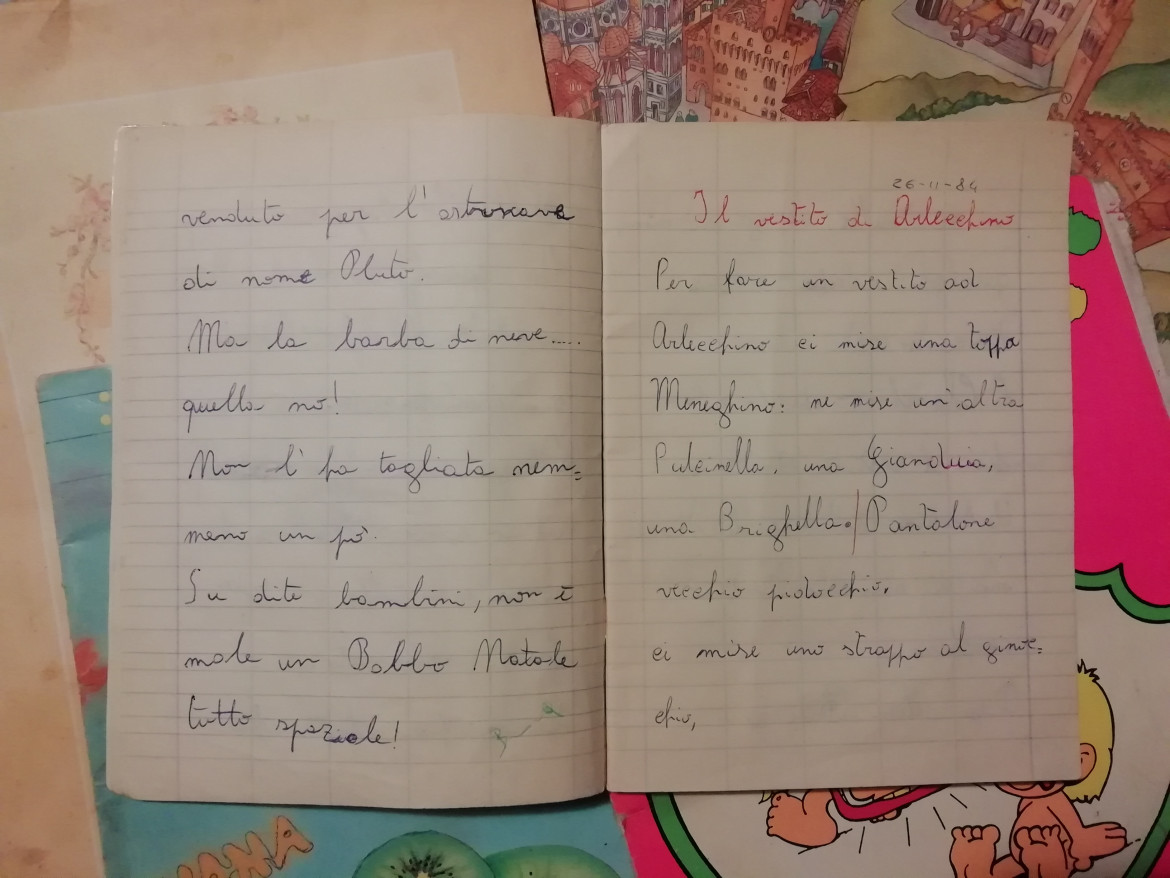 venduto per l'astronave
di nome Pluto.
Ma la barba di neve.....
quella no!
Non l'ha tagliata nem=
meno un pò.
Su dite bambini, non è
male un Babbo Natale
tutto spaziale!
26-11-84
Il vestito di Arlecchino
Per fare un vestito ad
Arlecchino ci mise una toppa
Meneghino: ne mise un'altra
Pulcinella, una Gianduia,
una Brighella. Pantalone
vecchio pidocchio,
ci mise uno strappo al ginoc=
chio,
ANA